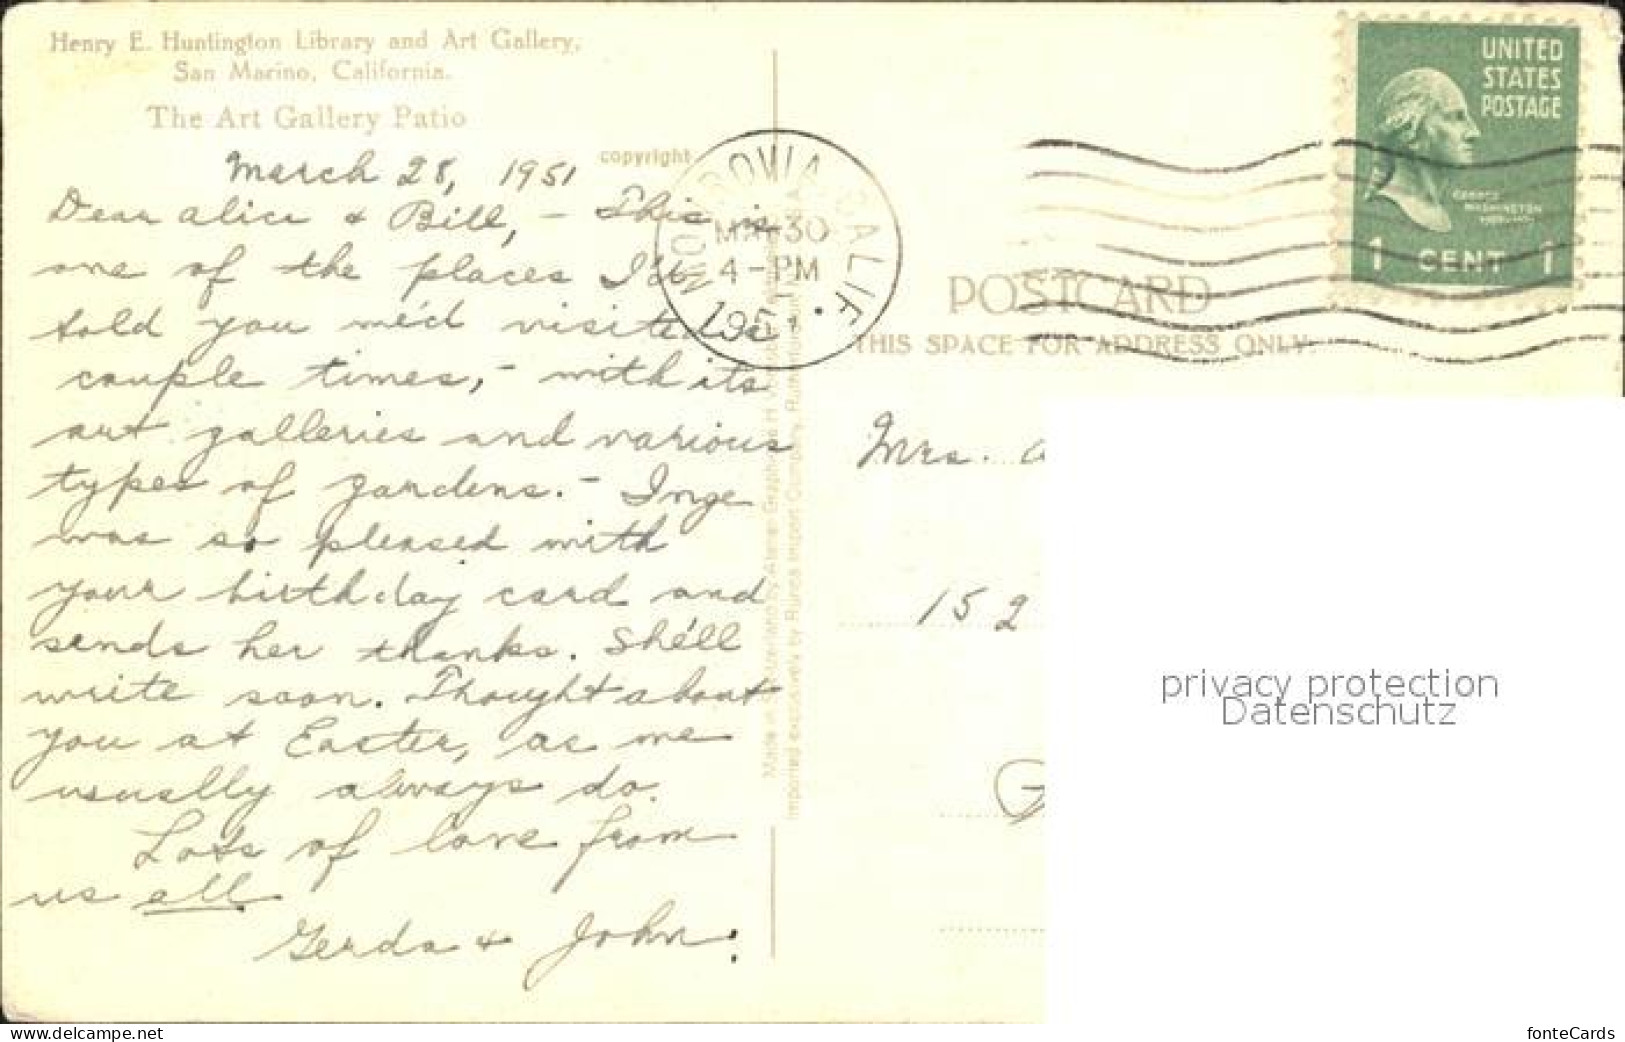 Henry E. Huntington Library and Art Gallery,
San Marino, California.
The Art Gallery Patio
copyright
March 28, 1951
Dear Alice & Bill, – This is
one of the places I'd
told you we'd visited a
couple times, – with its
art galleries and various
types of gardens. – Inge
was so pleased with
your birthday card and
sends her thanks. She'll
write soon. Thought about
you at Easter, as we
usually always do.
Lots of love from
us all
Gerda & John.
MONROVIA CALIF.
MAR 30
4 - PM
1951
UNITED
STATES
POSTAGE
GEORGE
WASHINGTON
1 CENT 1
POSTCARD
THIS SPACE FOR ADDRESS ONLY.
Mrs. a
152
G
Made in Switzerland by
Imported exclusively by Import Company,
privacy protection
Datenschutz
www.delcampe.net
fonteCards